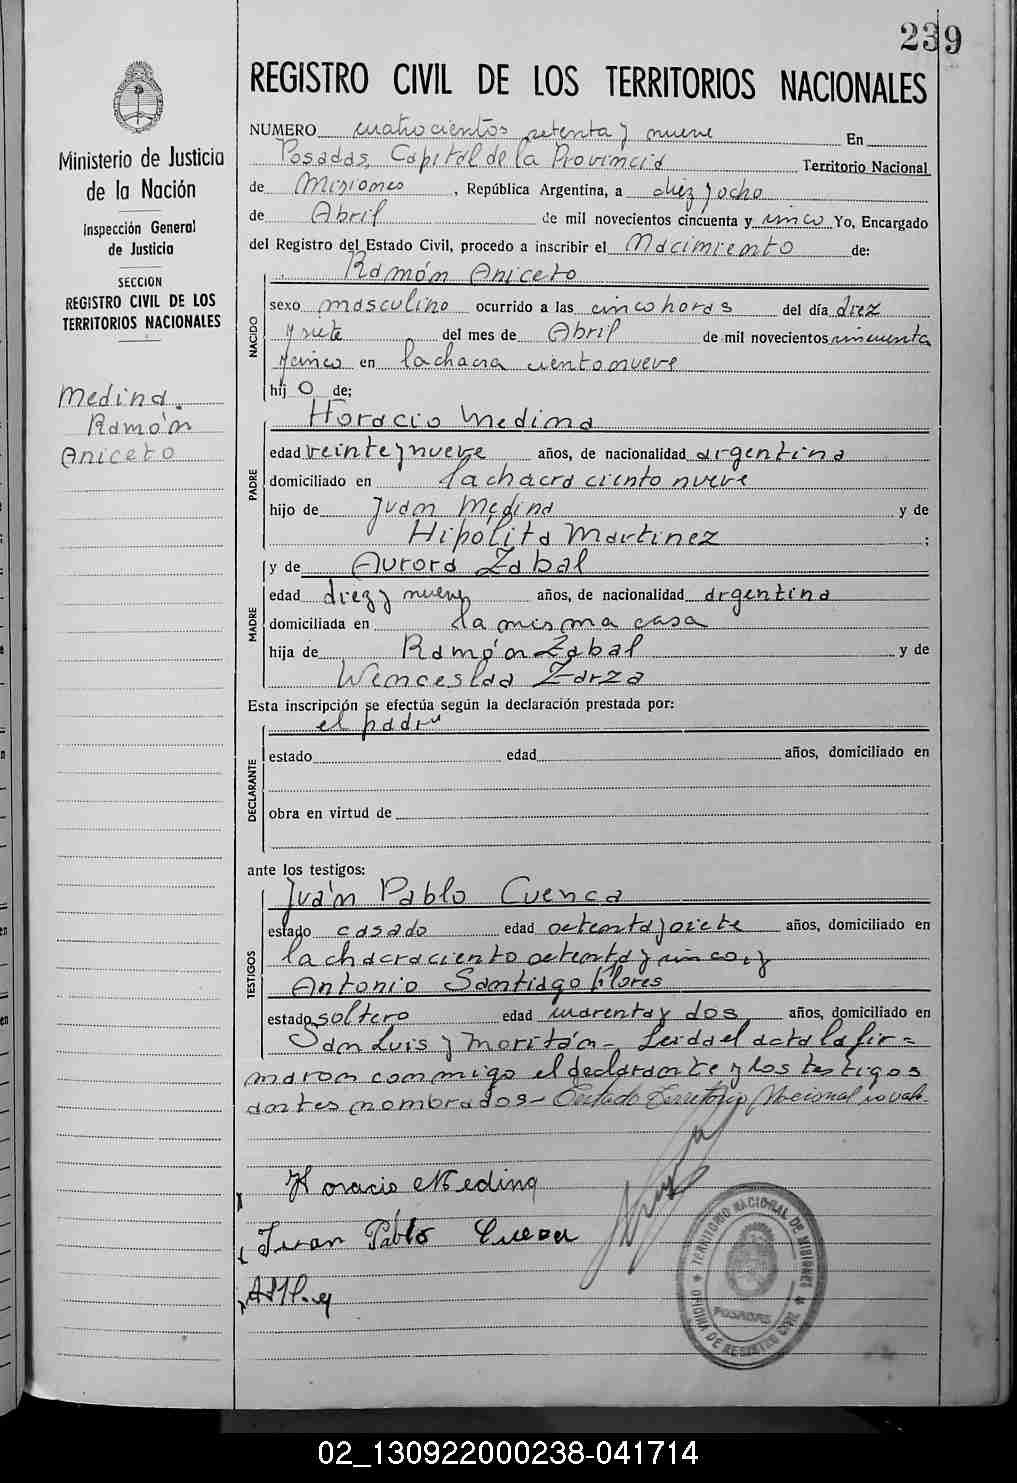 239
REGISTRO CIVIL DE LOS TERRITORIOS NACIONALES
Ministerio de Justicia
de la Nación
Inspección General
de Justicia
SECCION
REGISTRO CIVIL DE LOS
TERRITORIOS NACIONALES
Medina.
Ramón
Aniceto
NUMERO cuatrocientos setenta y nueve En
Posadas, Capital de la Provincia Territorio Nacional
de Misiones, República Argentina, a diez y ocho
de Abril de mil novecientos cincuenta y cinco Yo, Encargado
del Registro del Estado Civil, procedo a inscribir el Nacimiento de:
NACIDO
Ramón Aniceto
sexo masculino ocurrido a las cinco horas del día diez
y siete del mes de Abril de mil novecientos cincuenta
y cinco en la chacra ciento nueve
hij o de:
PADRE
Horacio Medina
edad veinte y nueve años, de nacionalidad argentina
domiciliado en la chacra ciento nueve
hijo de Juan Medina y de
Hipólita Martinez ;
MADRE
y de Aurora Zabal
edad diez y nueve años, de nacionalidad argentina
domiciliada en la misma casa
hija de Ramón Zabal y de
Wenceslaa Zarza
Esta inscripción se efectúa según la declaración prestada por:
DECLARANTE
el padre
estado edad años, domiciliado en
obra en virtud de
ante los testigos:
TESTIGOS
Juán Pablo Cuenca
estado casado edad setenta y siete años, domiciliado en
la chacra ciento setenta y cinco, y
Antonio Santiago Flores
estado soltero edad cuarenta y dos años, domiciliado en
San Luis y Moritán - Leida el acta la fir=
maron conmigo el declarante y los testigos
antes nombrados - Entado Territorio Nacional no vale.
Horacio Medina
Juan Pablo Cuenca
TERRITORIO NACIONAL DE MISIONES
POSADAS
OFICINA DE REGISTRO CIVIL
02_130922000238-041714